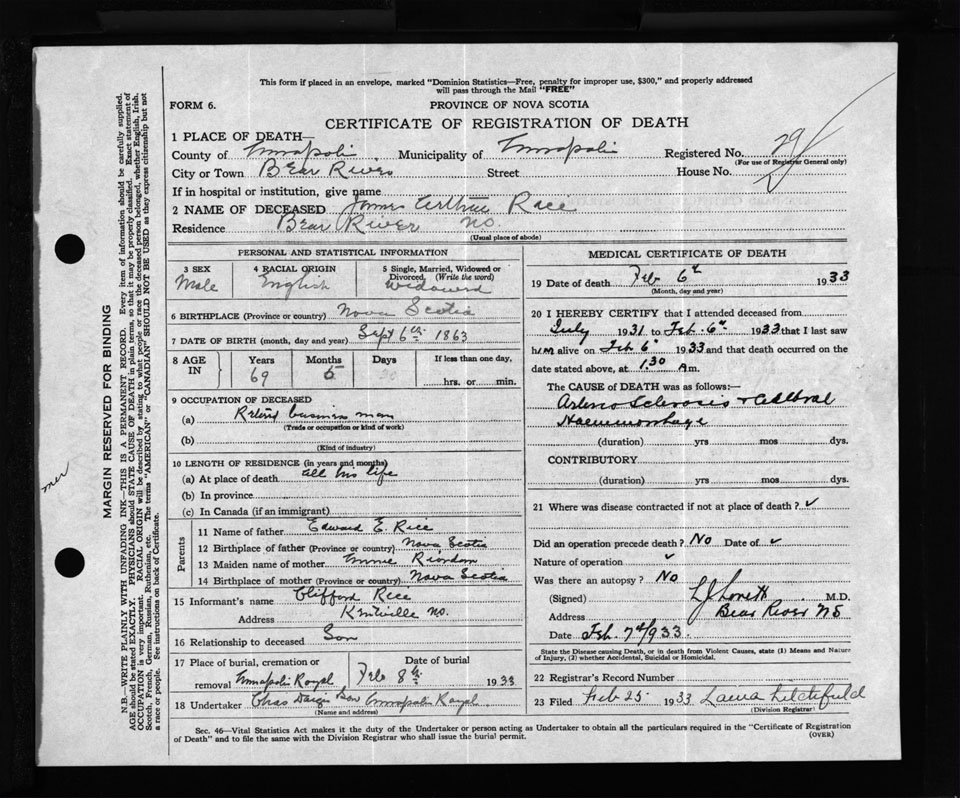 This form if placed in an envelope, marked "Dominion Statistics—Free, penalty for improper use, $300," and properly addressed
will pass through the Mail "FREE"
FORM 6.
PROVINCE OF NOVA SCOTIA
CERTIFICATE OF REGISTRATION OF DEATH
1 PLACE OF DEATH—
County of Annapolis Municipality of Annapolis Registered No. 29
(For use of Registrar General only)
City or Town Bear River Street House No.
If in hospital or institution, give name
2 NAME OF DECEASED James Arthur Race
Residence Bear River NS.
(Usual place of abode)
PERSONAL AND STATISTICAL INFORMATION
3 SEX Male
4 RACIAL ORIGIN English
5 Single, Married, Widowed or Divorced, (Write the word) Widowed
6 BIRTHPLACE (Province or country) Nova Scotia
7 DATE OF BIRTH (month, day and year) Sept 6th 1863
8 AGE IN Years 69 Months 5 Days If less than one day, hrs. or min.
9 OCCUPATION OF DECEASED
(a) Retired business man
(Trade or occupation or kind of work)
(b)
(Kind of industry)
10 LENGTH OF RESIDENCE (in years and months)
(a) At place of death all his life
(b) In province
(c) In Canada (if an immigrant)
Parents
11 Name of father Edward E. Rice
12 Birthplace of father (Province or country) Nova Scotia
13 Maiden name of mother Riordon
14 Birthplace of mother (Province or country) Nova Scotia
15 Informant's name Clifford Rice
Address Kentville NS.
16 Relationship to deceased Son
17 Place of burial, cremation or removal Annapolis Royal
Date of burial Feb 8th 1933
18 Undertaker Chas Son Annapolis Royal
(Name and address)
MEDICAL CERTIFICATE OF DEATH
19 Date of death Feb 6th 1933
(Month, day and year)
20 I HEREBY CERTIFY that I attended deceased from
July 1931 to Feb. 6th 1933 that I last saw
him alive on Feb 6th 1933 and that death occurred on the
date stated above, at 1.30 A m.
The CAUSE of DEATH was as follows:—
Arterio Sclerosis & Cerebral
Haemmorhage
(duration) yrs mos dys.
CONTRIBUTORY
(duration) yrs mos dys.
21 Where was disease contracted if not at place of death? ✓
Did an operation precede death? No Date of ✓
Nature of operation ✓
Was there an autopsy? No
(Signed) L J Lovett M.D.
Address Bear River NS
Date Feb. 7th 1933.
State the Disease causing Death, or in death from Violent Causes, state (1) Means and Nature
of Injury, (2) whether Accidental, Suicidal or Homicidal.
22 Registrar's Record Number
23 Filed Feb 25 1933 Laura Litchfield
(Division Registrar)
Sec. 46—Vital Statistics Act makes it the duty of the Undertaker or person acting as Undertaker to obtain all the particulars required in the "Certificate of Registration
of Death" and to file the same with the Division Registrar who shall issue the burial permit.
(OVER)
MARGIN RESERVED FOR BINDING
N.B.—WRITE PLAINLY WITH UNFADING INK—THIS IS A PERMANENT RECORD. Every item of information should be carefully supplied.
AGE should be stated EXACTLY. PHYSICIANS should STATE CAUSE OF DEATH in plain terms, so that it may be properly classified. Exact statement of
OCCUPATION is very important. RACIAL ORIGIN will be described by stating to what people or race the deceased person belonged, whether English, Irish,
Scotch, French, German, Russian, Ruthenian, etc. The terms "AMERICAN" or "CANADIAN SHOULD NOT BE USED as they express citizenship but not
a race or people. See instructions on back of Certificate.
mer